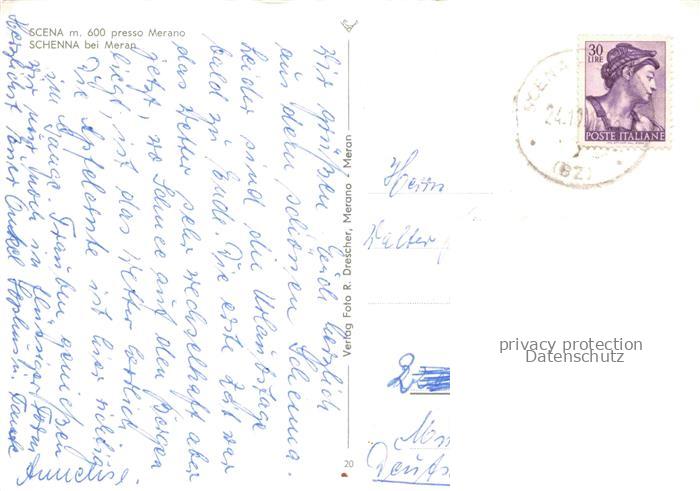 SCENA m. 600 presso Merano
SCHENNA bei Meran
Wir grüßen Euch herzlich
aus dem schönen Schenna.
Leider sind die Urlaubstage
bald zu Ende. Die erste Zeit war
das Wetter sehr wechselhaft aber
jetzt, wo Schnee auf den Bergen
liegt, ist das Wetter herrlich.
Die Apfelernte ist hier richtig
im Gange. Trauben genießen
wir nur noch in flüssiger Form
Herzlichst Euer Onkel u. Tante
Anneliese.
Verlag Foto R. Drescher, Merano - Meran
20
30
LIRE
POSTE ITALIANE
SCENA
24.1
(BZ)
Herrn
Walter
privacy protection
Datenschutz